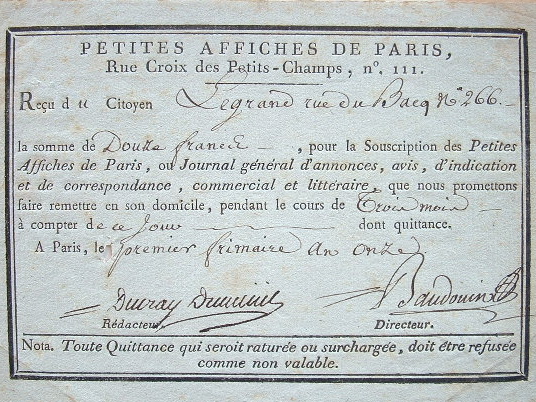 PETITES AFFICHES DE PARIS,
Rue Croix des Petits-Champs, nº. 111.
Reçu du Citoyen Legrand rue du Bacq Nº 266.
la somme de Douze francs, pour la Souscription des Petites
Affiches de Paris, ou Journal général d'annonces, avis, d'indication
et de correspondance, commercial et littéraire, que nous promettons
faire remettre en son domicile, pendant le cours de Trois mois
à compter de ce jour dont quittance.
A Paris, le premier frimaire an onze
Ducray Duminil Baudouin
Rédacteur. Directeur.
Nota. Toute Quittance qui seroit raturée ou surchargée, doit être refusée
comme non valable.